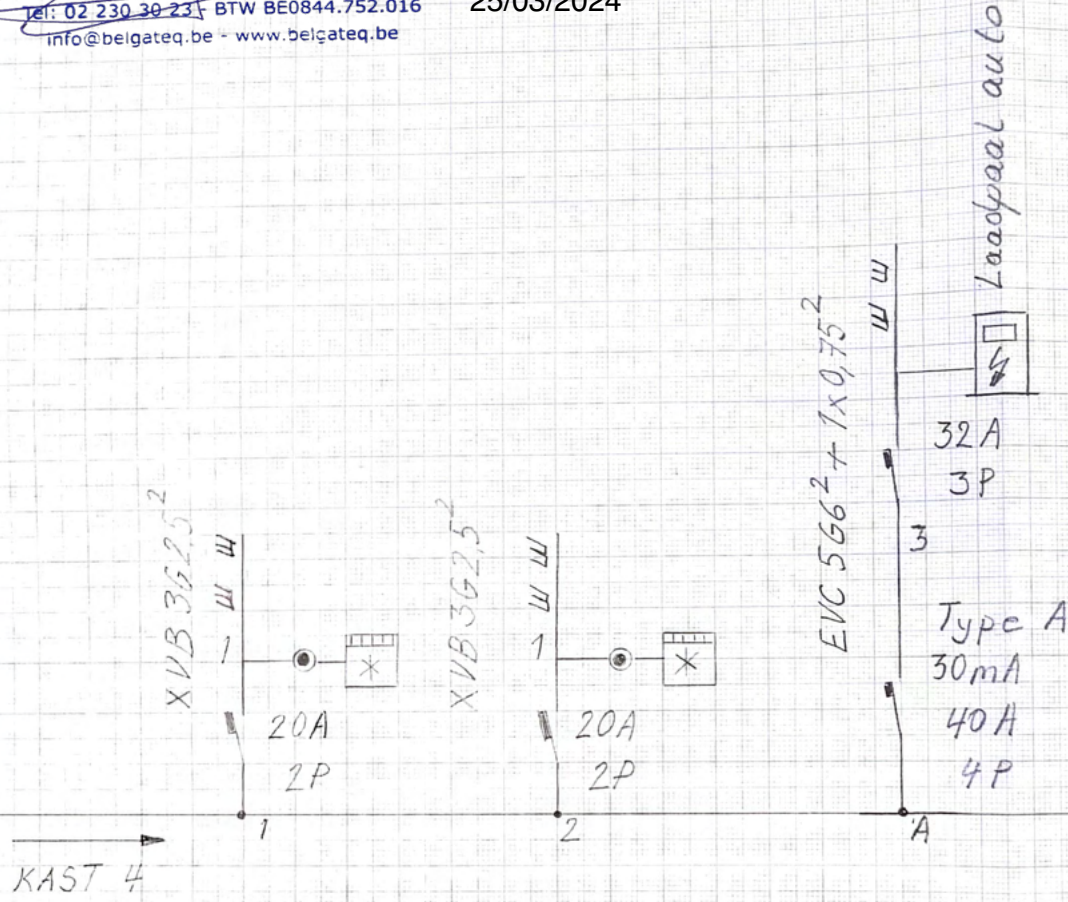 Tel: 02 230 30 23 - BTW BE0844.752.016
info@belgateq.be - www.belgateq.be
25/03/2024
Laadpaal auto
EVC 5G6² + 1x0,75²
32A
3P
3
Type A
30mA
40A
4P
A
XVB 3G2,5²
1
20A
2P
1
XVB 3G2,5²
1
20A
2P
2
KAST 4